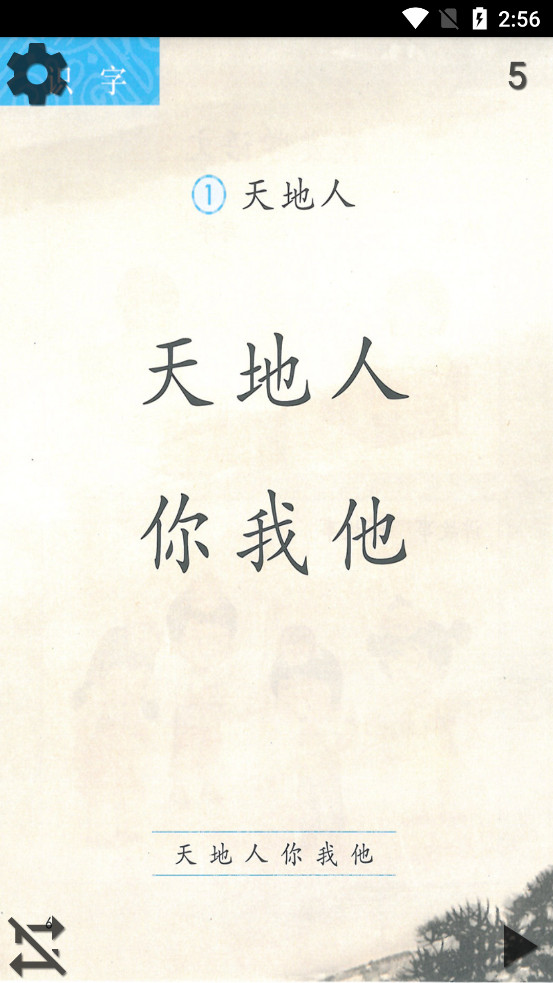 2:56
识字
5
1 天地人
天地人
你我他
天地人你我他
6